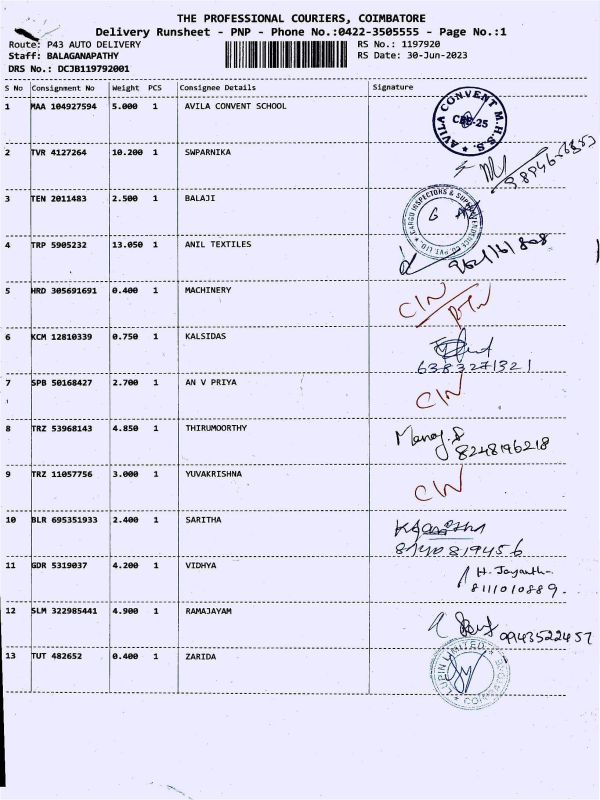 THE PROFESSIONAL COURIERS, COIMBATORE
Delivery Runsheet - PNP - Phone No.:0422-3505555 - Page No.:1
Route: P43 AUTO DELIVERY RS No.: 1197920
Staff: BALAGANAPATHY RS Date: 30-Jun-2023
DRS No.: DCJB119792001
S No Consignment No Weight PCS Consignee Details Signature
1 MAA 104927594 5.000 1 AVILA CONVENT SCHOOL
AVILA CONVENT M.H.S.S.
2 TVR 4127264 10.200 1 SWPARNIKA
3 TEN 2011483 2.500 1 BALAJI
4 TRP 5905232 13.050 1 ANIL TEXTILES
5 HRD 305691691 0.400 1 MACHINERY CIN
6 KCM 12810339 0.750 1 KALSIDAS
6383271321
7 SPB 50168427 2.700 1 AN V PRIYA CIN
8 TRZ 53968143 4.850 1 THIRUMOORTHY Manoj.S
8248196218
9 TRZ 11057756 3.000 1 YUVAKRISHNA CIN
10 BLR 695351933 2.400 1 SARITHA
8140819456
11 GDR 5319037 4.200 1 VIDHYA H. Jayanth
8111010889.
12 SLM 322985441 4.900 1 RAMAJAYAM
9943522457
13 TUT 482652 0.400 1 ZARIDA
LUPIN LIMITED